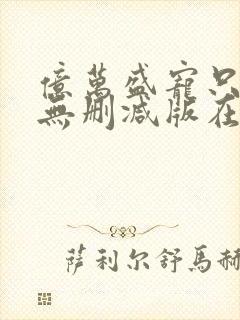 億萬盛寵只
無刪減版在
萨利尔舒馬赫